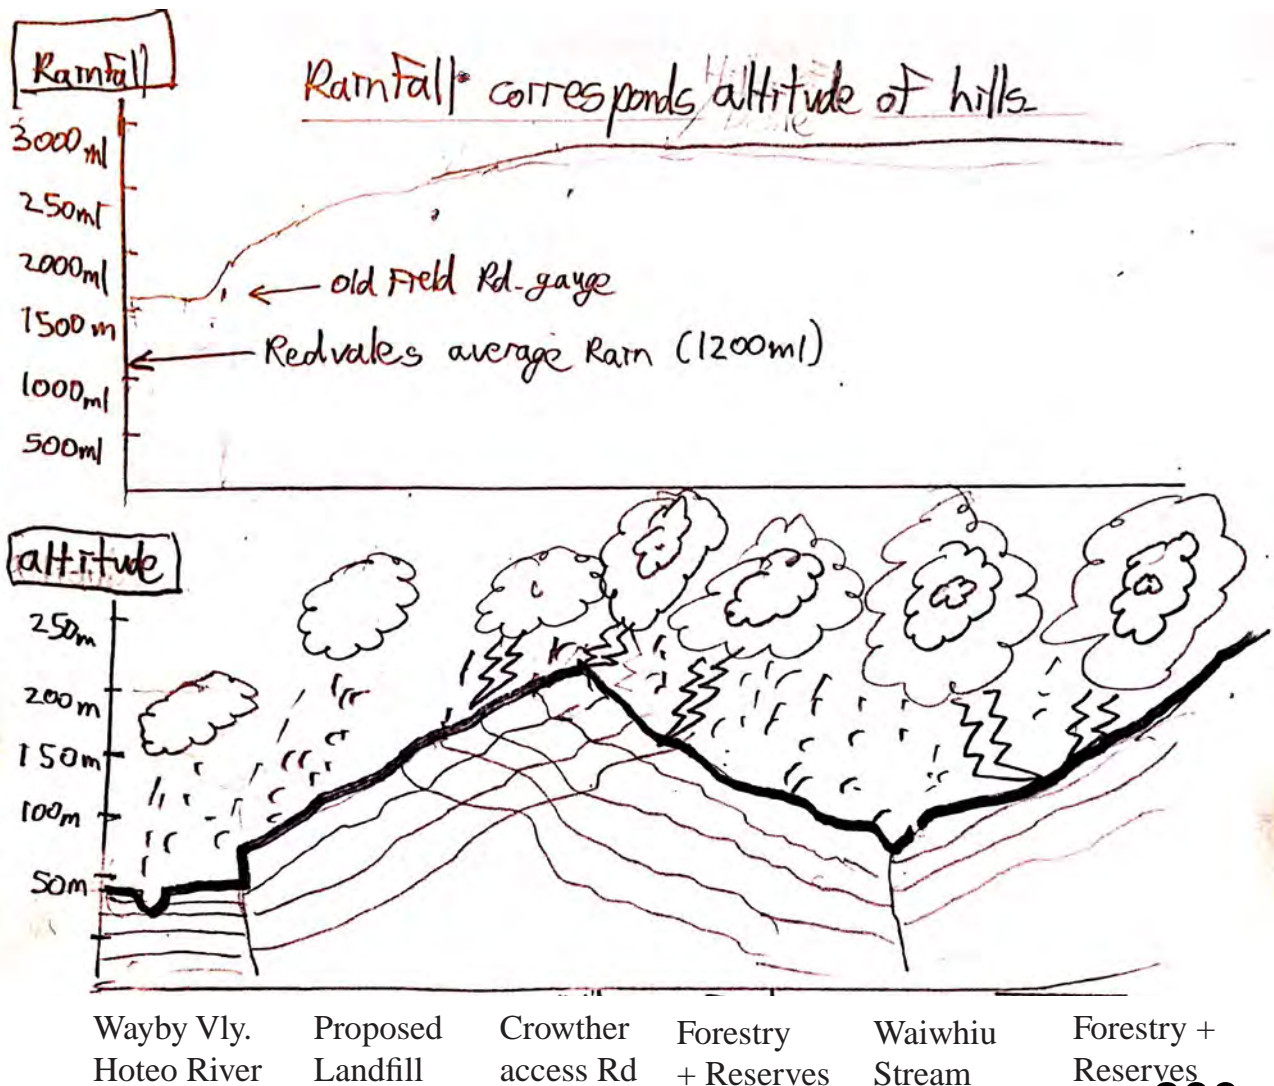 Rainfall
Rainfall corresponds altitude of hills
3000 ml
250ml
2000ml
1500 m
1000ml
500ml
old Field Rd-gauge
Redvales average Rain (1200ml)
altitude
250m
200m
150m
100m
50m
Wayby Vly.
Hoteo River
Proposed
Landfill
Crowther
access Rd
Forestry
+ Reserves
Waiwhiu
Stream
Forestry +
Reserves